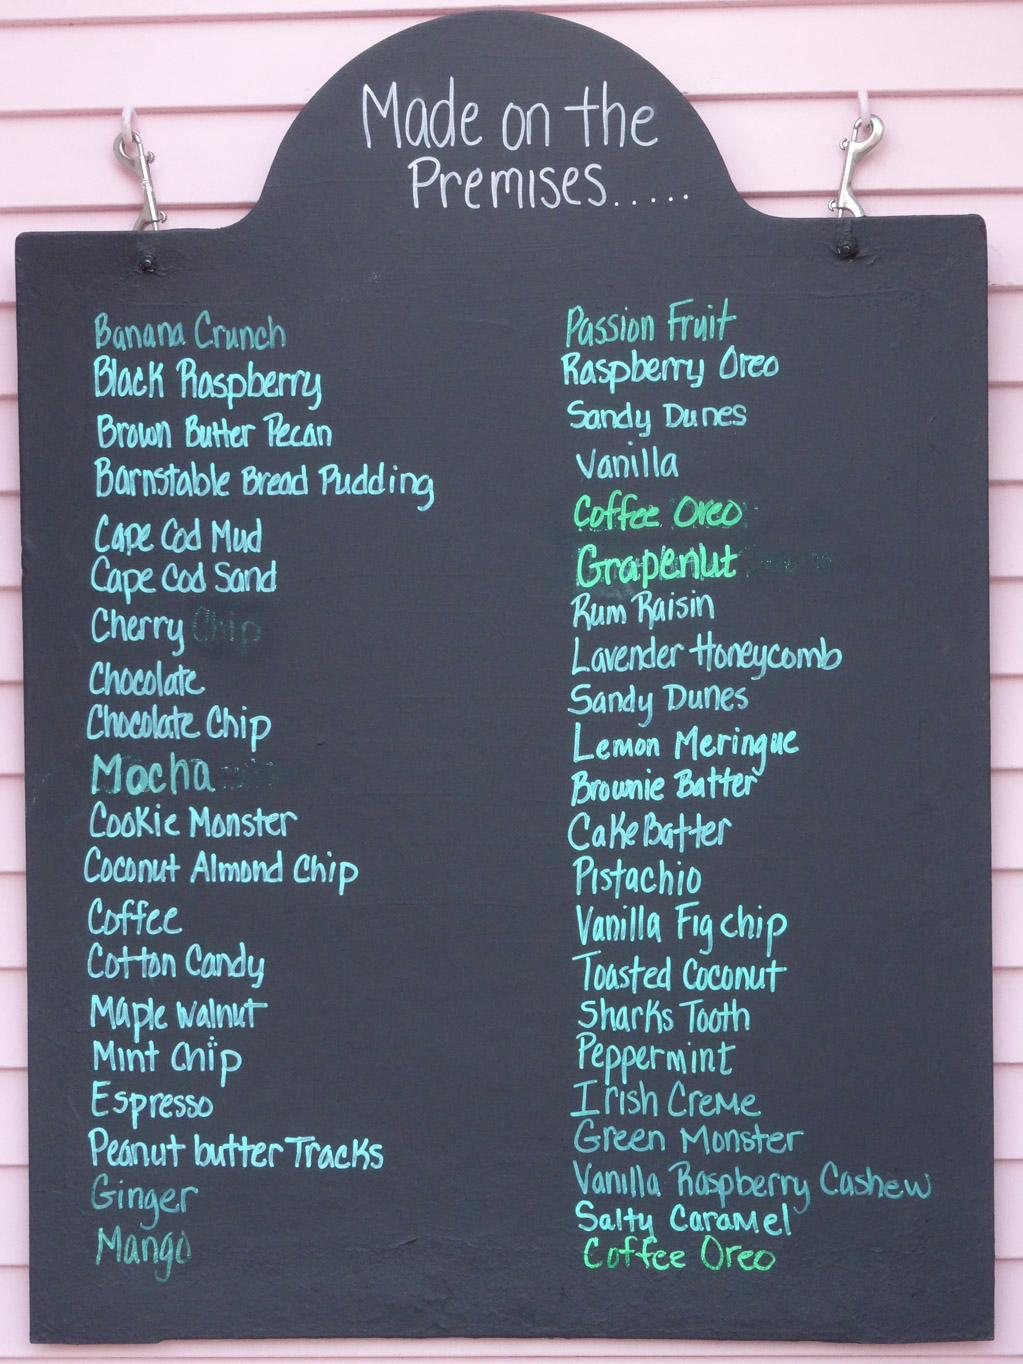 Made on the
Premises.....
Banana Crunch
Black Raspberry
Brown Butter Pecan
Barnstable Bread Pudding
Cape Cod Mud
Cape Cod Sand
Cherry Chip
Chocolate
Chocolate Chip
Mocha
Cookie Monster
Coconut Almond Chip
Coffee
Cotton Candy
Maple Walnut
Mint Chip
Espresso
Peanut butter Tracks
Ginger
Mango
Passion Fruit
Raspberry Oreo
Sandy Dunes
Vanilla
Coffee Oreo
Grapenut
Rum Raisin
Lavender Honeycomb
Sandy Dunes
Lemon Meringue
Brownie Batter
Cake Batter
Pistachio
Vanilla Fig chip
Toasted Coconut
Sharks Tooth
Peppermint
Irish Creme
Green Monster
Vanilla Raspberry Cashew
Salty Caramel
Coffee Oreo